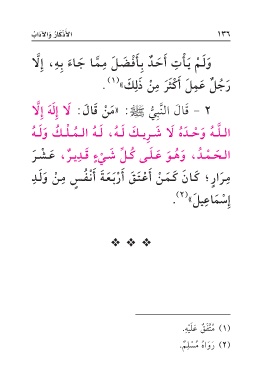 ١٣٦ الأَذْكَارُ وَالآدَابُ
وَلَمْ يَأْتِ أَحَدٌ بِأَفْضَلَ مِمَّا جَاءَ بِهِ، إِلَّا
رَجُلٌ عَمِلَ أَكْثَرَ مِنْ ذَلِكَ»(١).
٢ - قَالَ النَّبِيُّ ﷺ: «مَنْ قَالَ: لَا إِلَهَ إِلَّا
اللَّهُ وَحْدَهُ لَا شَرِيكَ لَهُ، لَهُ الْمُلْكُ وَلَهُ
الْحَمْدُ، وَهُوَ عَلَى كُلِّ شَيْءٍ قَدِيرٌ، عَشْرَ
مِرَارٍ؛ كَانَ كَمَنْ أَعْتَقَ أَرْبَعَةَ أَنْفُسٍ مِنْ وَلَدِ
إِسْمَاعِيلَ»(٢).
(١) مُتَّفَقٌ عَلَيْهِ.
(٢) رَوَاهُ مُسْلِمٌ.